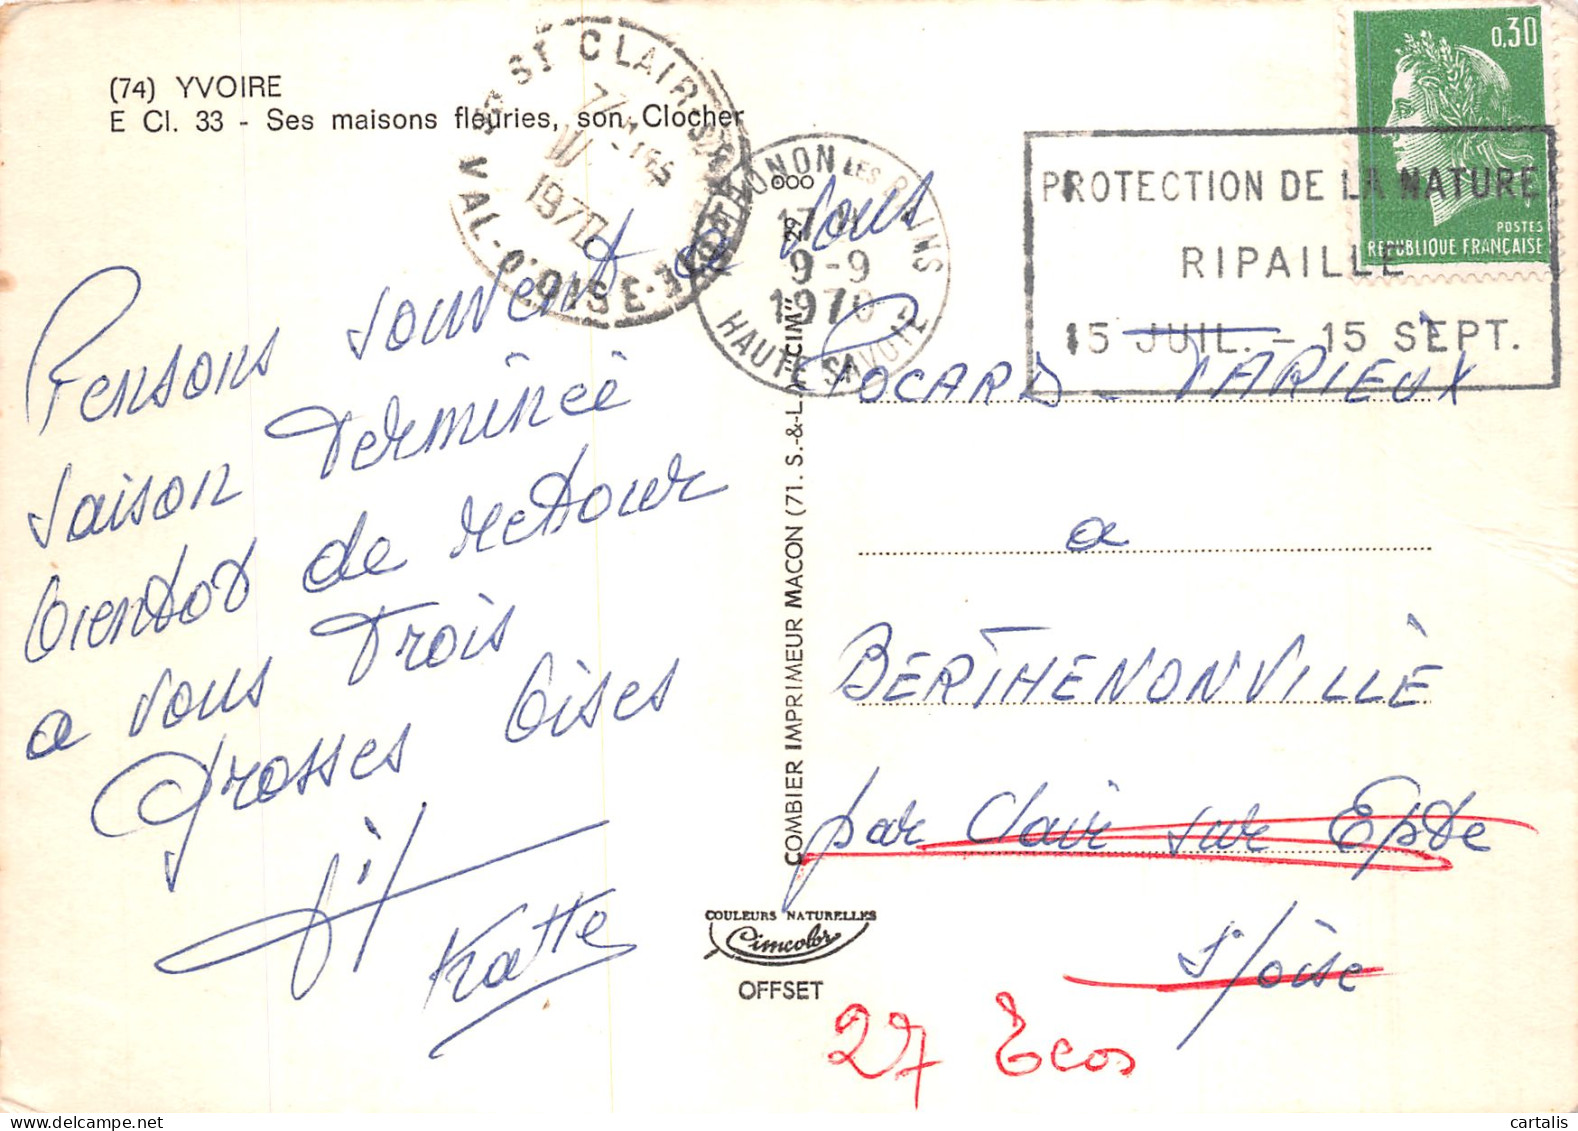 (74) YVOIRE
E Cl. 33 - Ses maisons fleuries, son Clocher
Pensons souvent a vous
saison terminée
bientot de retour
a vous trois
grosses bises
Katte
ST CLAIR
VAL-D'OISE
1970
THONON LES BAINS
17 H
9-9
1970
HAUTE SAVOIE
PROTECTION DE LA NATURE
RIPAILLE
15 JUIL. - 15 SEPT.
0,30
POSTES
REPUBLIQUE FRANÇAISE
COMBIER IMPRIMEUR MACON (71. S.-&-L.) "CIM"
POCARD - TARIEUX
a
BERTHENONVILLE
par Clair sur Epte
S/oise
27 Ecos
COULEURS NATURELLES
Cimcolor
OFFSET
cartalis